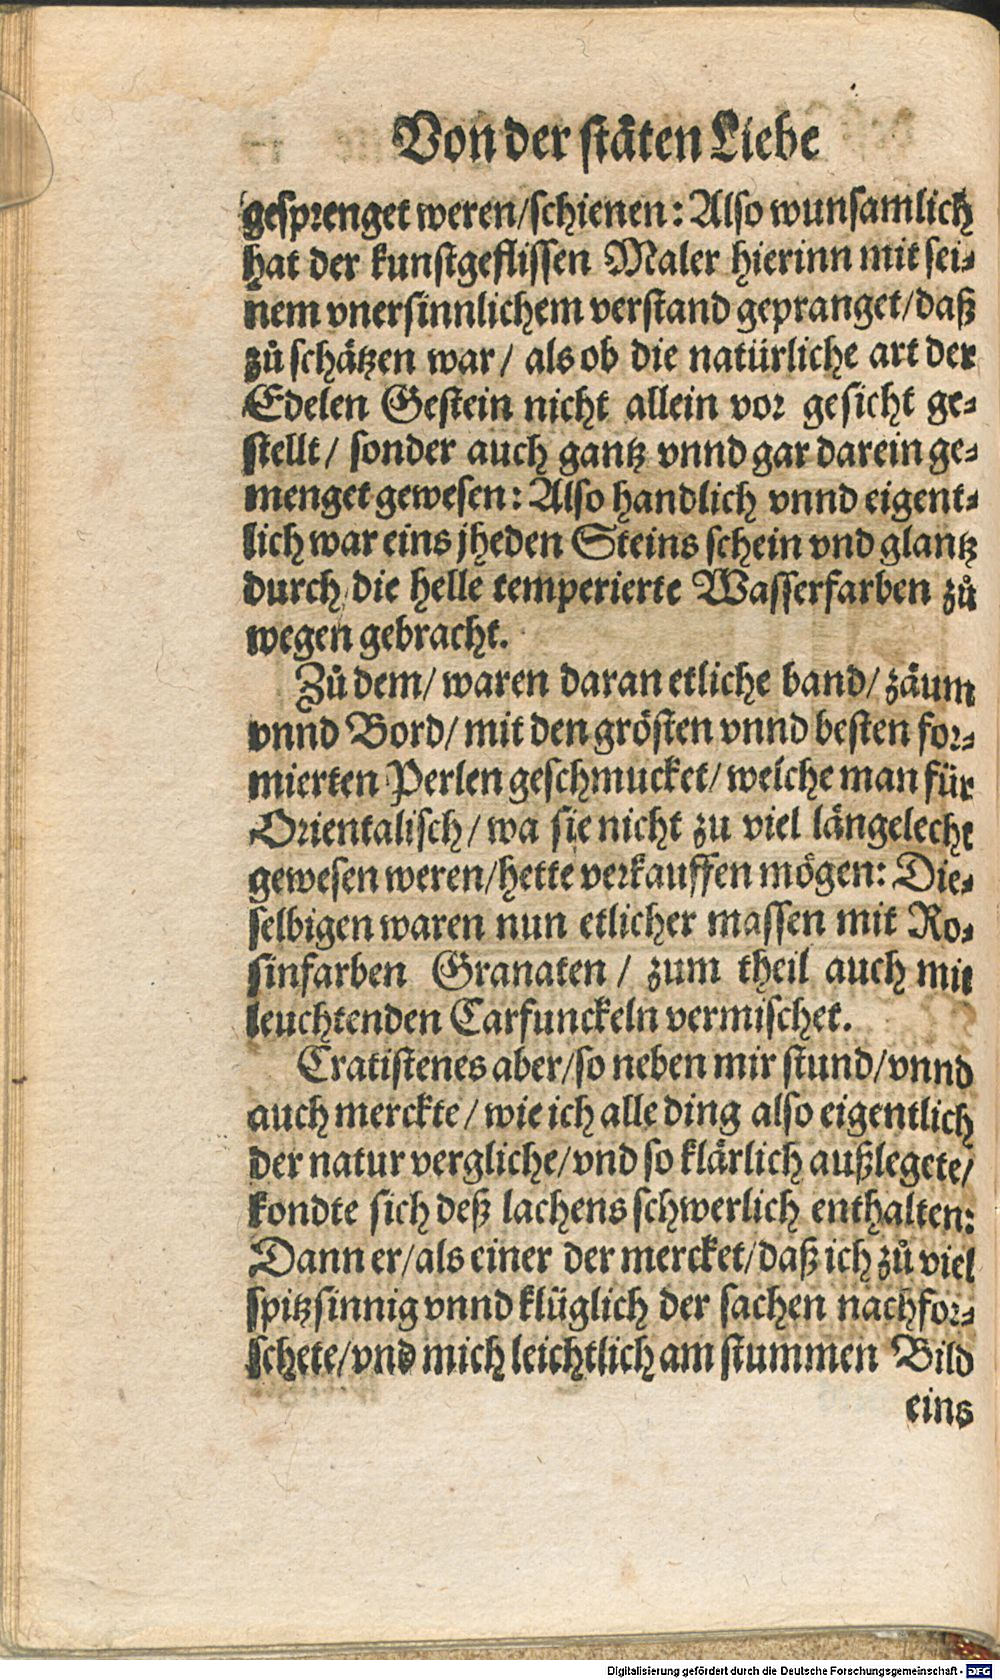 Von der stäten Liebe
gesprenget weren/schienen: Also wunsamlich
hat der kunstgeflissen Maler hierinn mit sei-
nem vnersinnlichem verstand gepranget/daß
zů schätzen war/ als ob die natürliche art der
Edelen Gestein nicht allein vor gesicht ge-
stellt/ sonder auch gantz vnnd gar darein ge-
menget gewesen: Also handlich vnnd eigent-
lich war eins jheden Steins schein vnd glantz
durch die helle temperierte Wasserfarben zů
wegen gebracht.
Zů dem/ waren daran etliche band/ zäum
vnnd Bord/ mit den grösten vnnd besten for-
mierten Perlen geschmucket/ welche man für
Orientalisch/ wa sie nicht zu viel längelecht
gewesen weren/hette verkauffen mögen: Die-
selbigen waren nun etlicher massen mit Ro-
sinfarben Granaten / zum theil auch mit
leuchtenden Carfunckeln vermischet.
Cratistenes aber/so neben mir stund/vnnd
auch merckte/ wie ich alle ding also eigentlich
der natur vergliche/vnd so klärlich außlegete/
kondte sich deß lachens schwerlich enthalten:
Dann er/als einer der mercket/daß ich zů viel
spitzsinnig vnnd klüglich der sachen nachfor-
schete/vnd mich leichtlich am stummen Bild
eins
Digitalisierung gefördert durch die Deutsche Forschungsgemeinschaft - DFG